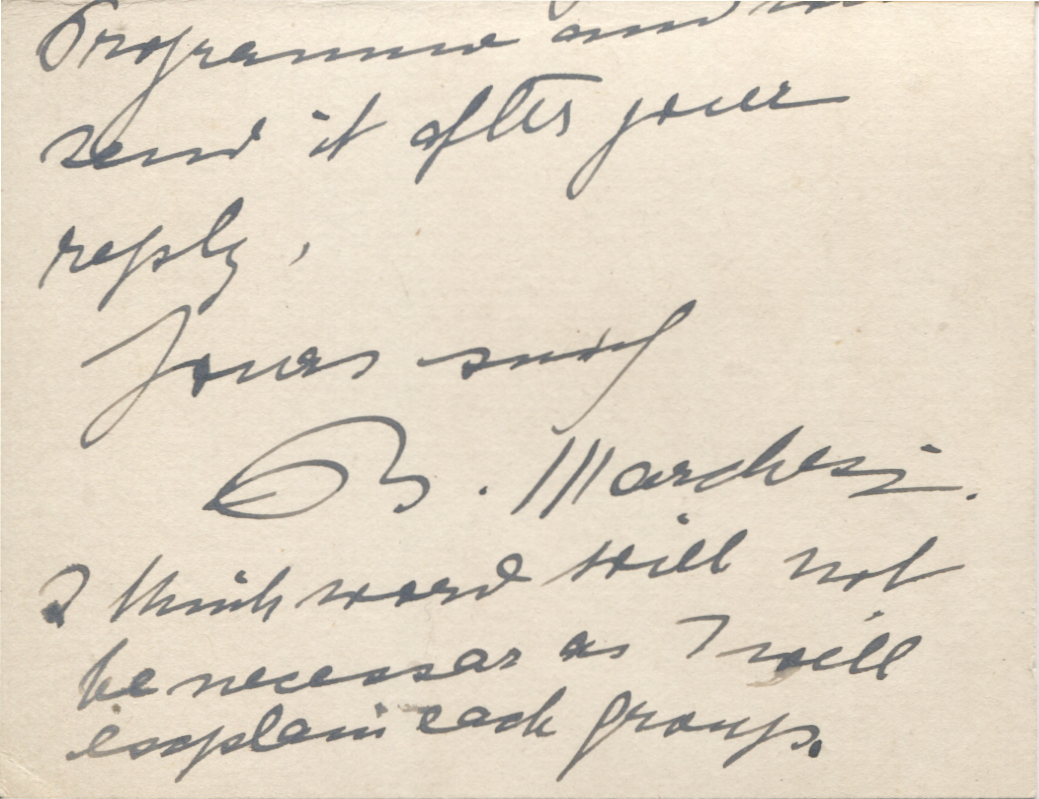 Programme and
send it after your
reply,
Yours sincy
B. Marchesi.
I think word will not
be necessar as I will
explain each group.